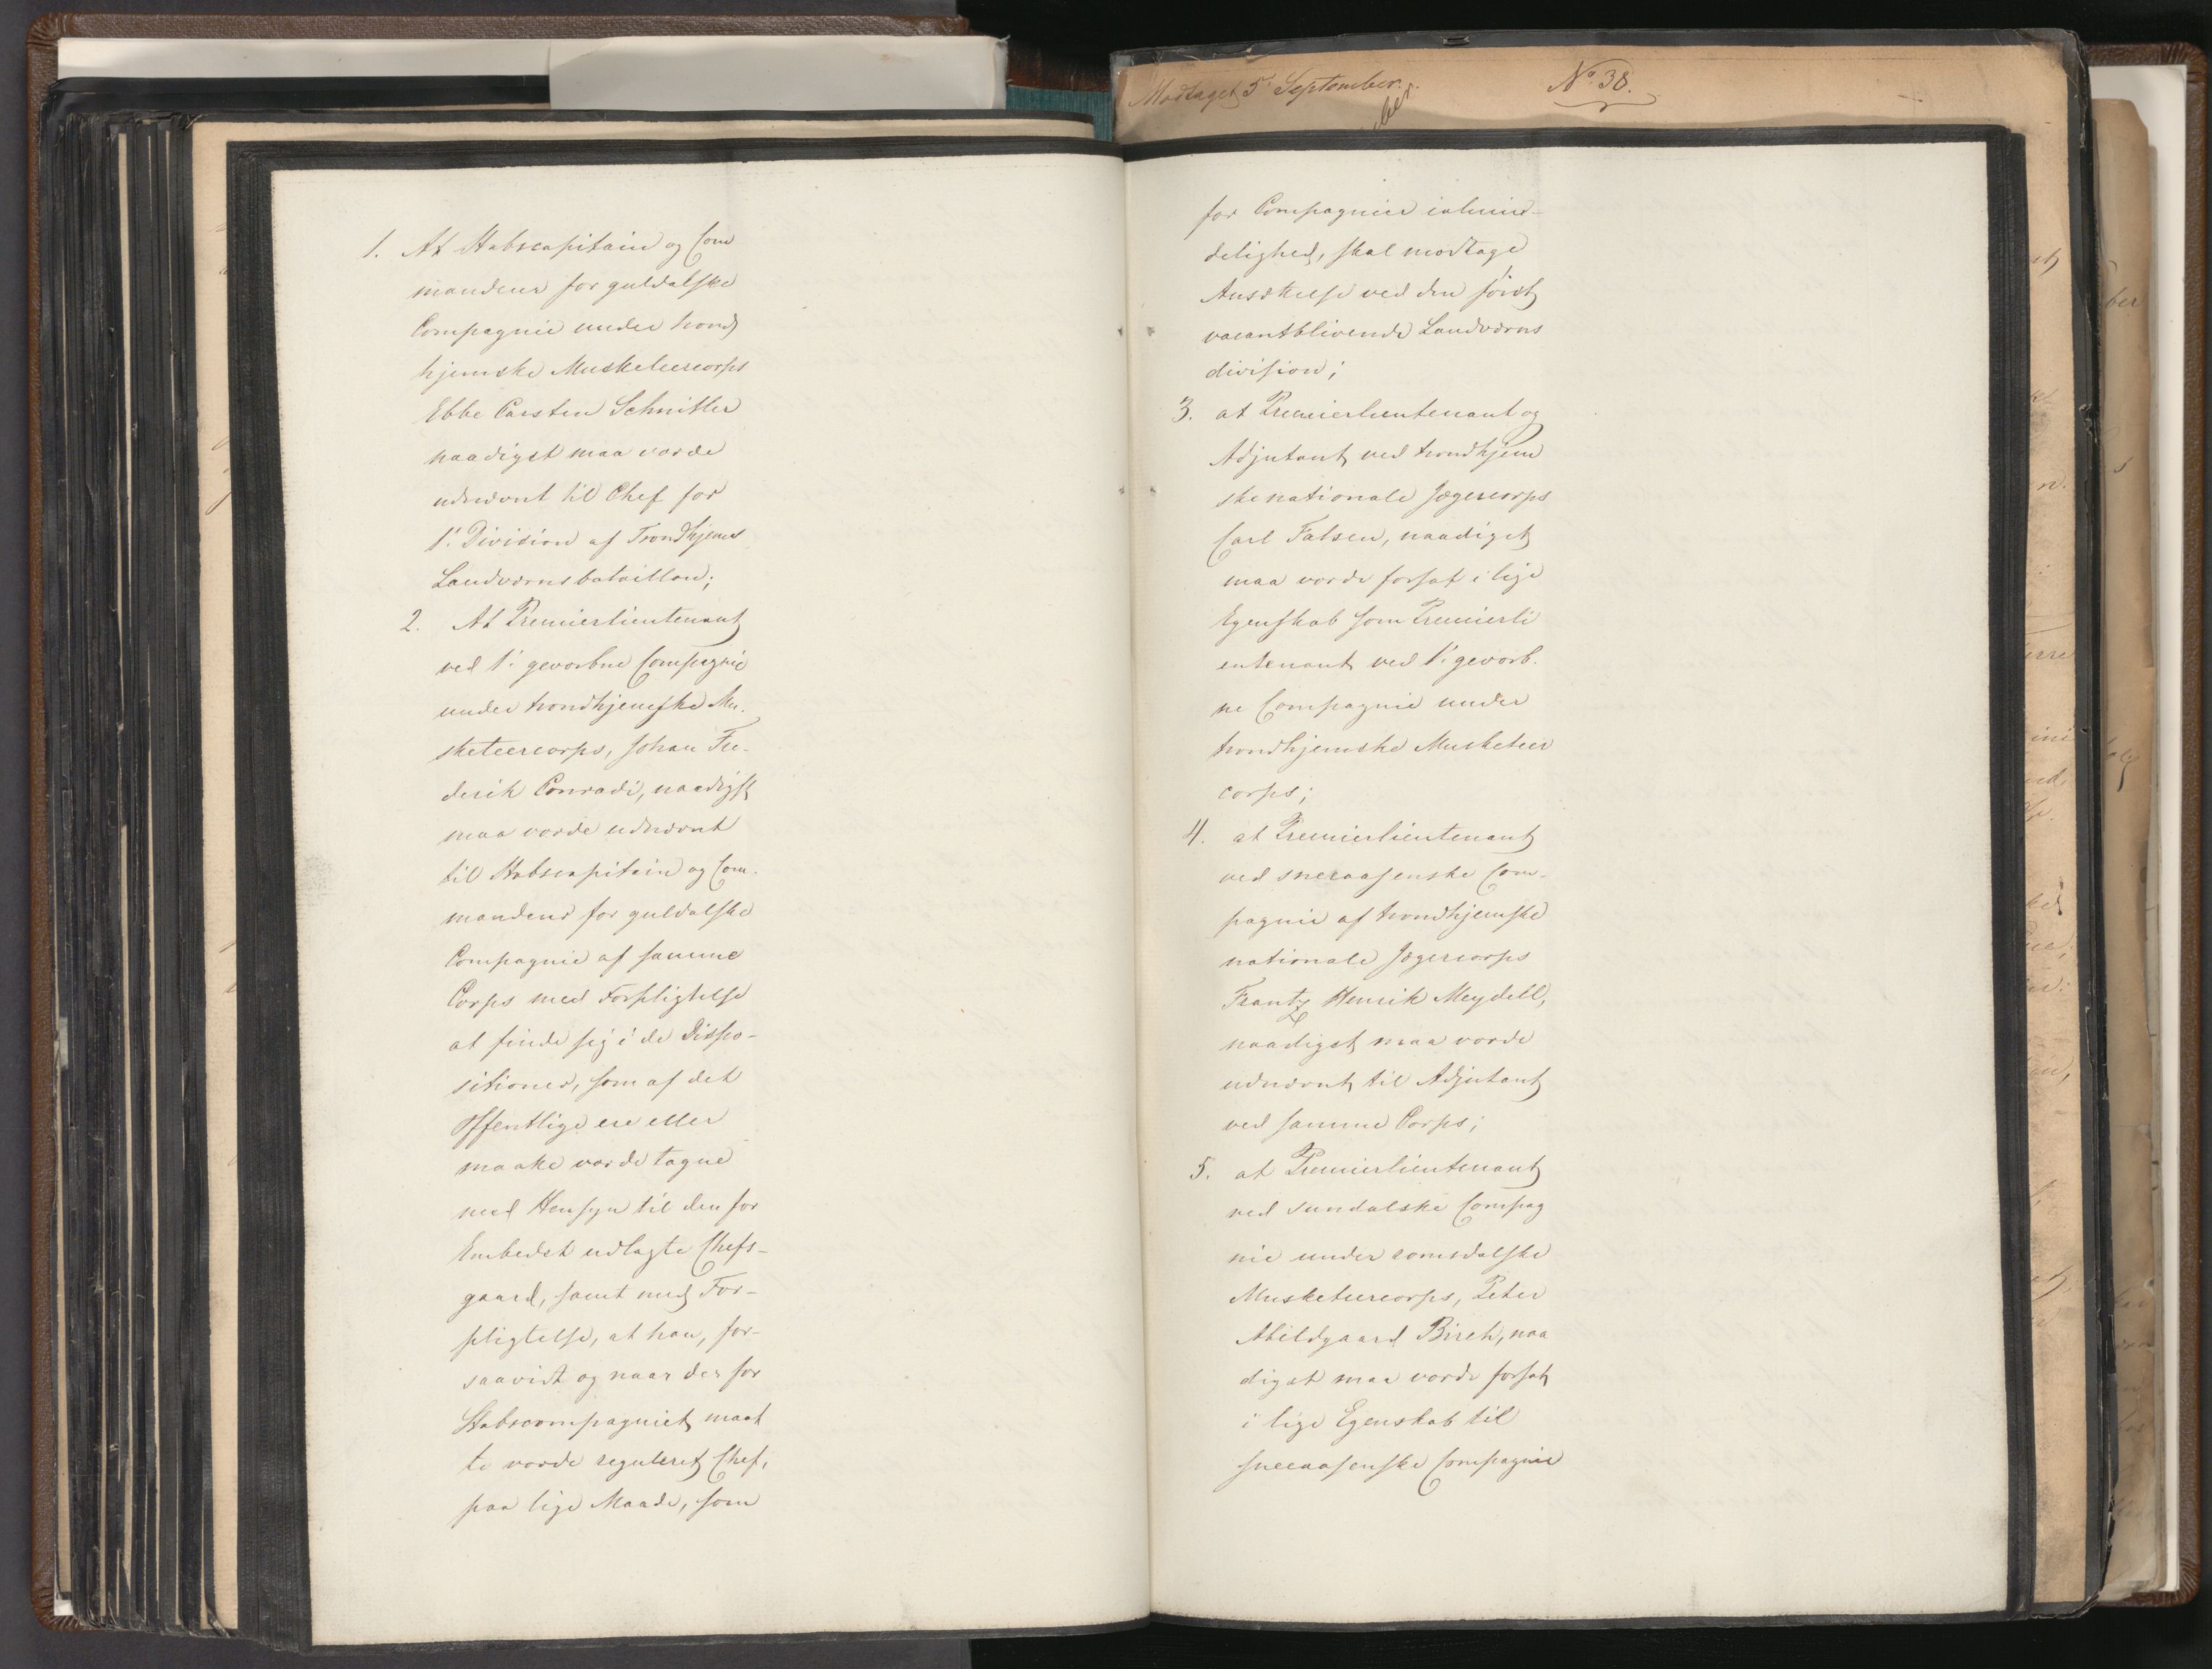 1. At Stabscapitain og Com
mandeur for guldalske
Compagnie under trond
hjemske Musketeercorps
Ebbe Carsten Schnitler
naadigst maa vorde
udnævnt til Chef for
1ste Division af Trondhjems
Landværnsbataillon;
2. At Premierlieutenant
ved 1ste gevorbne Compagnie
under trondhjemske Mu-
sketeercorps, Johan Fre-
derik Conradi, naadigst
maa vorde udnævnt
til Stabscapitain og Com-
mandeur for guldalske
Compagnie af samme
Corps med Forpligtelse
at finde sig i de Dispo-
sitioner, som af det
Offentlige ere eller
maatte vorde tagne
med Hensyn til den for
Embedet udlagte Chefs-
gaard, samt med For-
pligtelse, at han, for-
saavidt og naar der for
Stabscompagniet maat
te vorde reguleret Chef,
paa lige Maade, som
Modtaget 5te September.
No. 38.
ber.
for Compagnier i almin-
delighed, skal modtage
Ansættelse ved den først
vacantblivende Landværns
division;
3. at Premierlieutenant og
Adjutant ved trondhjem
ske nationale Jægercorps
Carl Falsen, naadigst
maa vorde forsat i lige
Egenskab som Premierli
eutenant ved 1ste gevorb-
ne Compagnie under
trondhjemske Musketeer
corps;
4. at Premierlieutenant
ved sneeaasenske Com-
pagnie af trondhjemske
nationale Jægercorps
Frantz Henrik Meydell,
naadigst maa vorde
udnævnt til Adjutant
ved samme Corps;
5. at Premierlieutenant
ved sundalske Compag
nie under romsdalske
Musketeercorps, Peter
Abildgaard Birch, naa
digst maa vorde forsat
i lige Egenskab til
sneeaasenske Compagnie